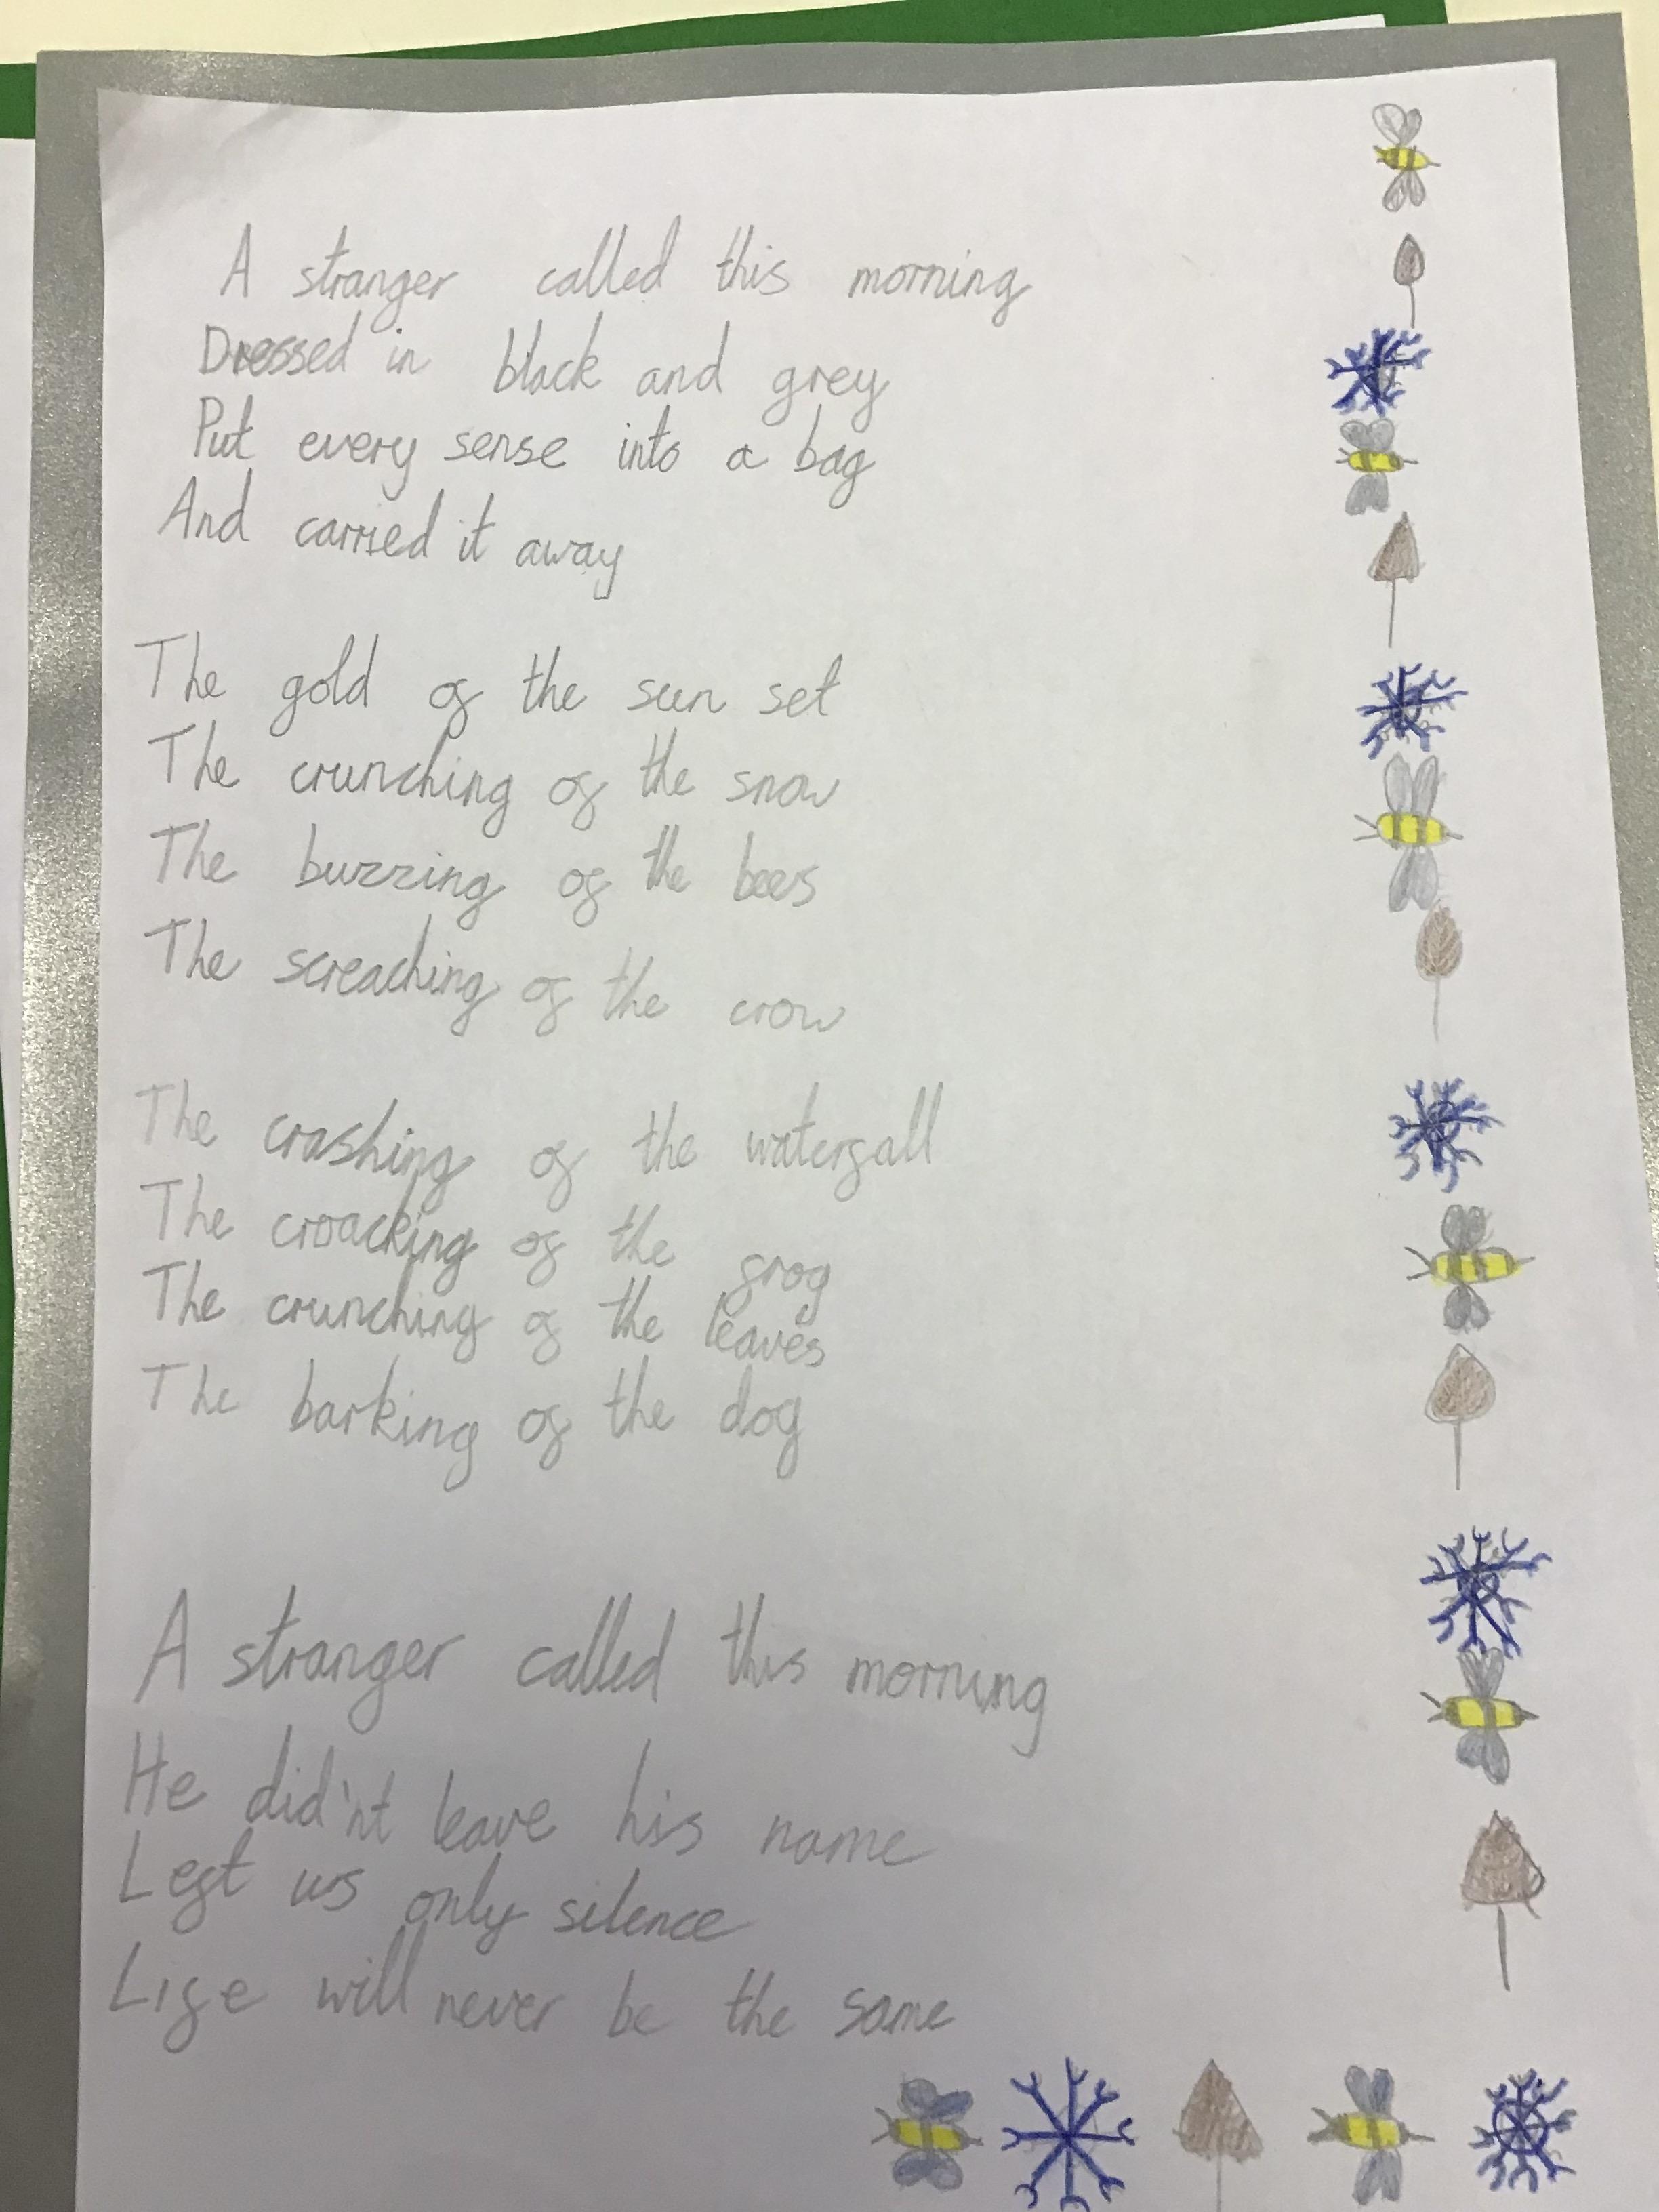 A stranger called this morning
Dressed in black and grey
Put every sense into a bag
And carried it away
The gold of the sun set
The crunching of the snow
The buzzing of the bees
The screaching of the crow
The crashing of the waterfall
The croacking of the frog
The crunching of the leaves
The barking of the dog
A stranger called this morning
He did'nt leave his name
Left us only silence
Life will never be the same